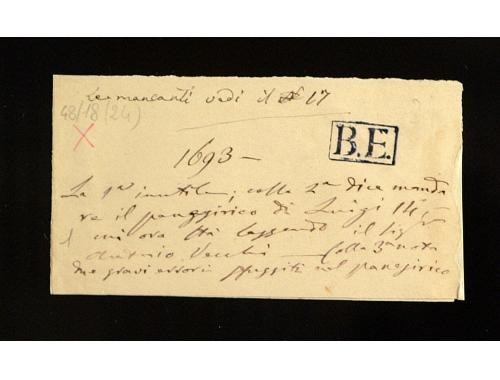 Le mancanti vedi il N 17
48/18 (24)
B.E.
1693 —
La 1a inutile; colla 2a dice manda
re il panegirico di Luigi 14,
cui ora sta leggendo il Sigr
Antonio Vecchi — Colla 3a nota
due gravi errori sfuggiti nel panegirico